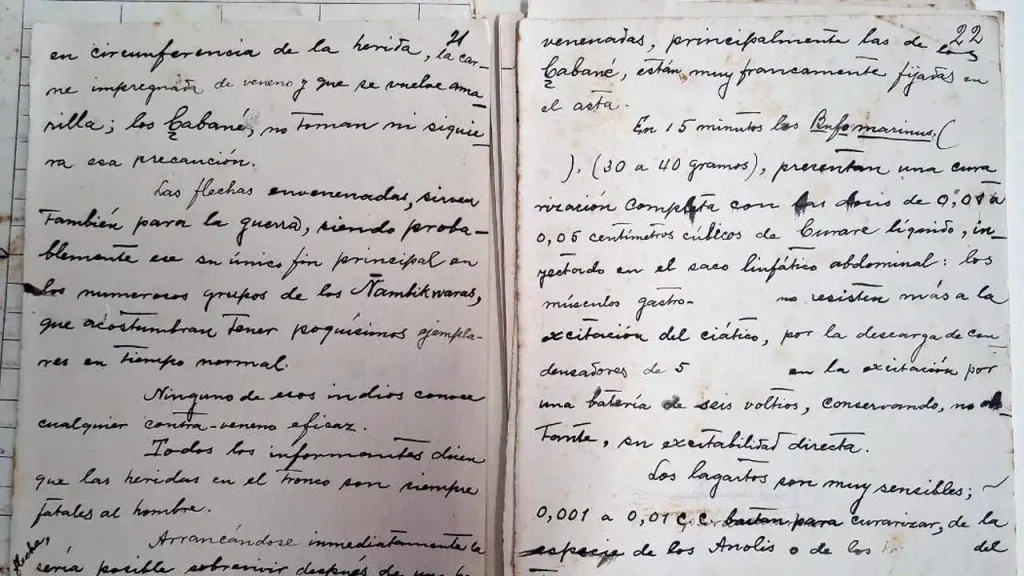 21
en circunferencia de la herida, la car-
ne impregnada de veneno y que se vuelve ama-
rilla; los Cabané, no toman ni siquie-
ra esa precaución.
Las flechas envenenadas, sirven
también para la guerra, siendo proba-
blemente ese su único fin principal en
los numerosos grupos de los Nambikwaras,
que acostumbran tener poquísimos ejempla-
res en tiempo normal.
Ninguno de esos indios conoce
cualquier contra-veneno eficaz.
Todos los informantes dicen
que las heridas en el tronco son siempre
fatales al hombre.
Arrancándose inmediatamente la
flecha,
sería posible sobrevivir después de
22
venenadas, principalmente las de los
Cabané, están muy francamente fijadas en
el asta.
En 15 minutos los Bufo marinus, (
), (30 a 40 gramos), presentan una cura
rización completa con las dosis de 0,01 a
0,05 centímetros cúbicos de Curare líquido, in-
yectado en el saco linfático abdominal: los
músculos gastro- no resisten más a la
excitación del ciático, por la descarga de con
densadores de 5 en la excitación por
una batería de seis voltios, conservando, no obs
tante, su excitabilidad directa.
Los lagartos son muy sensibles;
0,001 a 0,01 c.c. bastan para curarizar, de la
especie de los Anolis o de los del